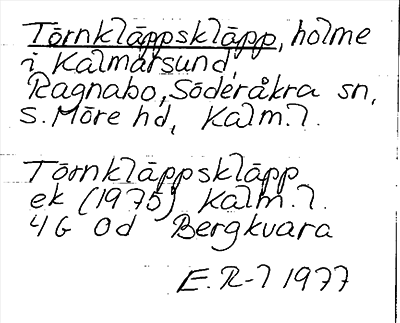 Törnkläppskläpp, holme
i Kalmarsund,
Ragnabo, Söderåkra sn,
S. Möre hd, Kalm. l.
Törnkläppskläpp
ek (1975) Kalm. l.
4G 0d Bergkvara
E. R-l 1977